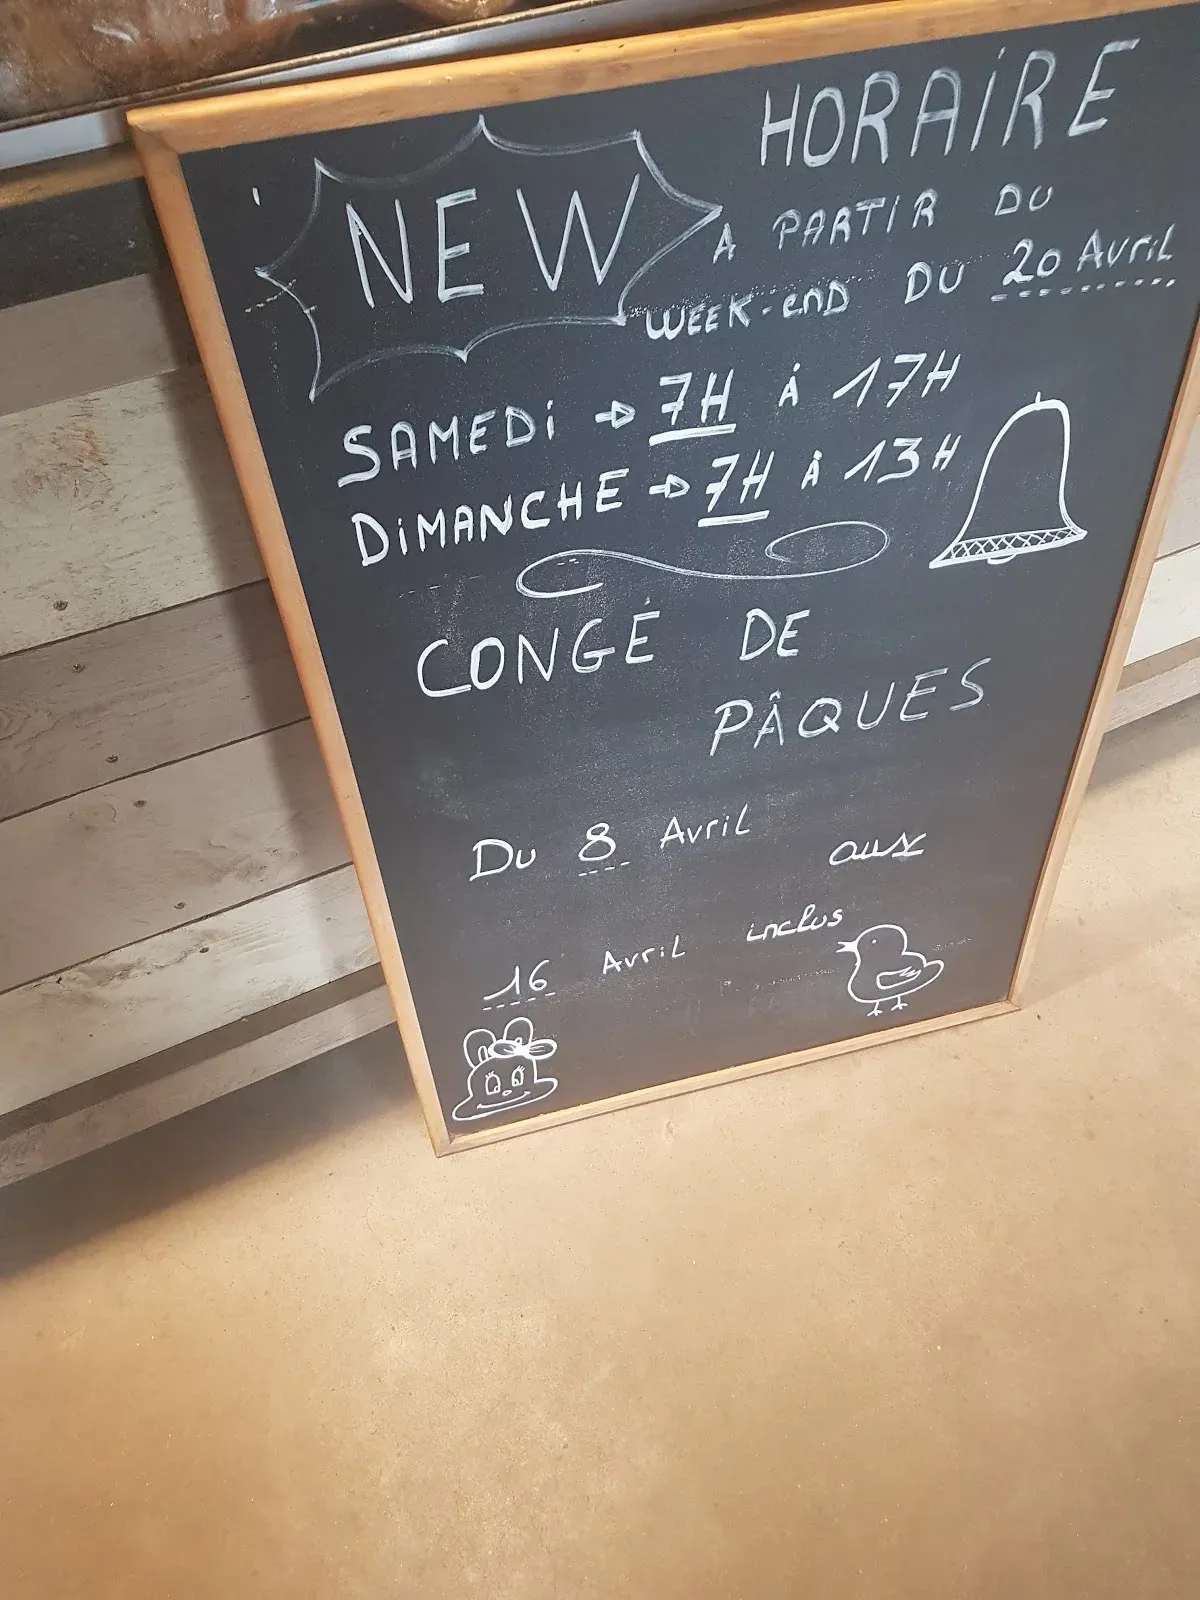 NEW
HORAiRE
A PARTIR DU
WEEK-END DU 20 Avril
SAMEDi → 7H À 17H
DiMANCHE → 7H À 13H
CONGÉ DE
PÂQUES
Du 8 Avril aux
16 Avril inclus